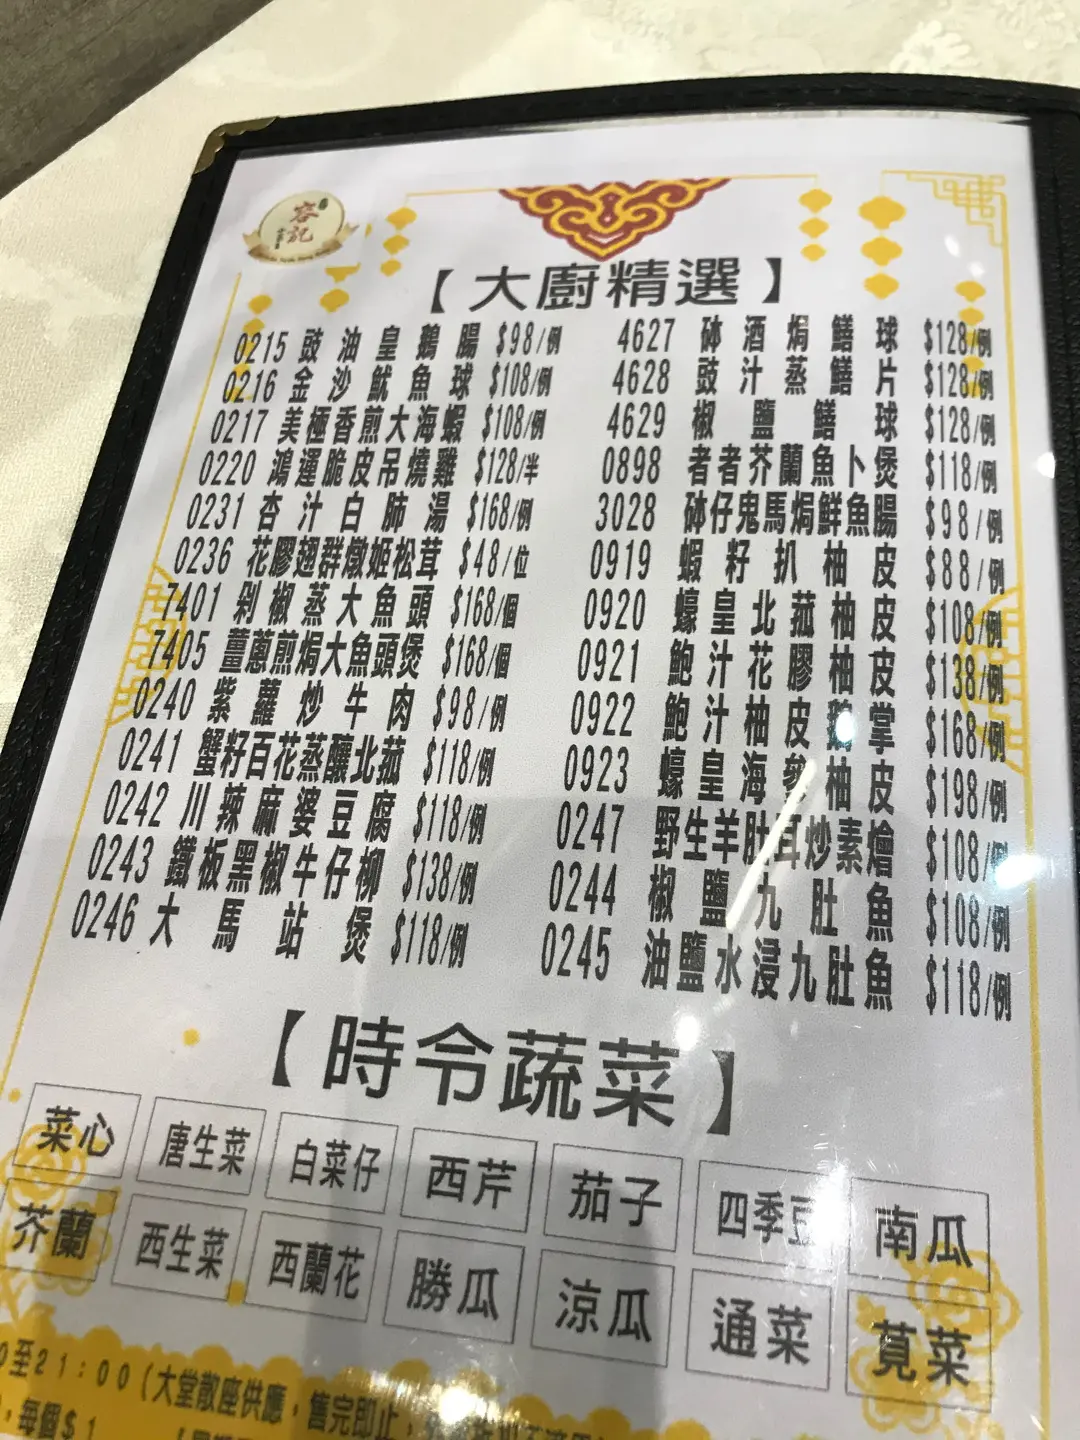 容記
【大廚精選】
0215 豉油皇鵝腸 $98/例
0216 金沙魷魚球 $108/例
0217 美極香煎大海蝦 $108/例
0220 鴻運脆皮吊燒雞 $128/半
0231 杏汁白肺湯 $168/例
0236 花膠翅群燉姬松茸 $48/位
7401 剁椒蒸大魚頭 $168/個
7405 薑蔥煎焗大魚頭煲 $168/個
0240 紫蘿炒牛肉 $98/例
0241 蟹籽百花蒸釀北菰 $118/例
0242 川辣麻婆豆腐 $118/例
0243 鐵板黑椒牛仔柳 $138/例
0246 大馬站煲 $118/例
4627 砵酒焗鱔球 $128/例
4628 豉汁蒸鱔片 $128/例
4629 椒鹽鱔球 $128/例
0898 者者芥蘭魚卜煲 $118/例
3028 砵仔鬼馬焗鮮魚腸 $98/例
0919 蝦籽扒柚皮 $88/例
0920 蠔皇北菰柚皮 $108/例
0921 鮑汁花膠柚皮 $138/例
0922 鮑汁柚皮鵝掌 $168/例
0923 蠔皇海參柚皮 $198/例
0247 野生羊肚耳炒素燴 $108/例
0244 椒鹽九肚魚 $108/例
0245 油鹽水浸九肚魚 $118/例
【時令蔬菜】
菜心 唐生菜 白菜仔 西芹 茄子 四季豆 南瓜
芥蘭 西生菜 西蘭花 勝瓜 涼瓜 通菜 莧菜
至21:00(大堂散座供應，售完即止，
，每個$1